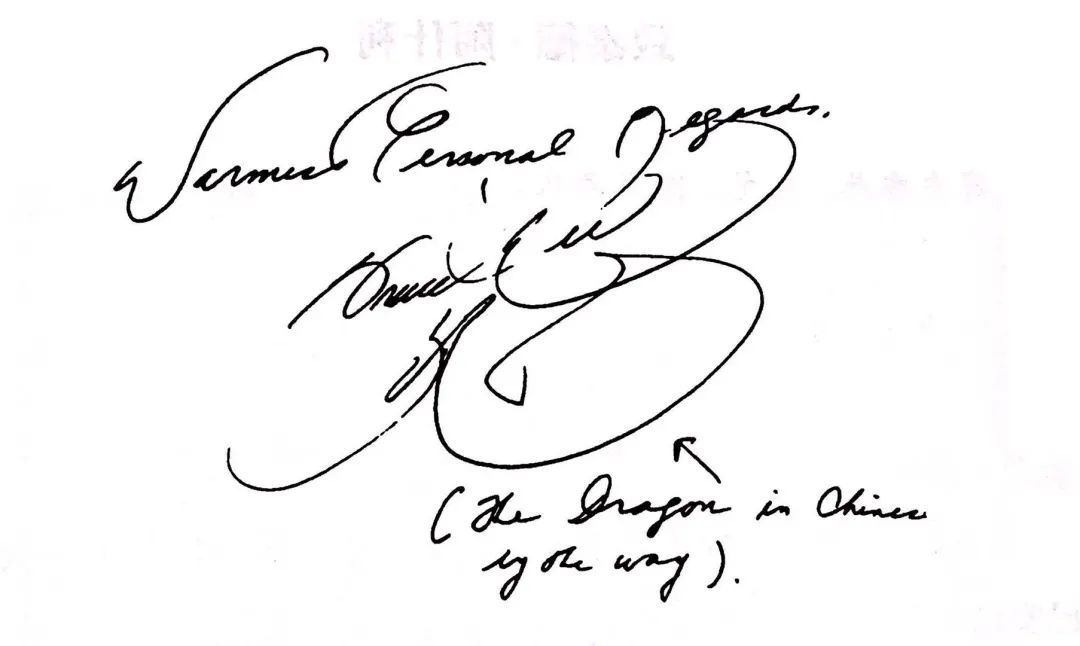 Warmest Personal Regards.
Bruce Lee
龍
(The Dragon in Chinese
by the way).